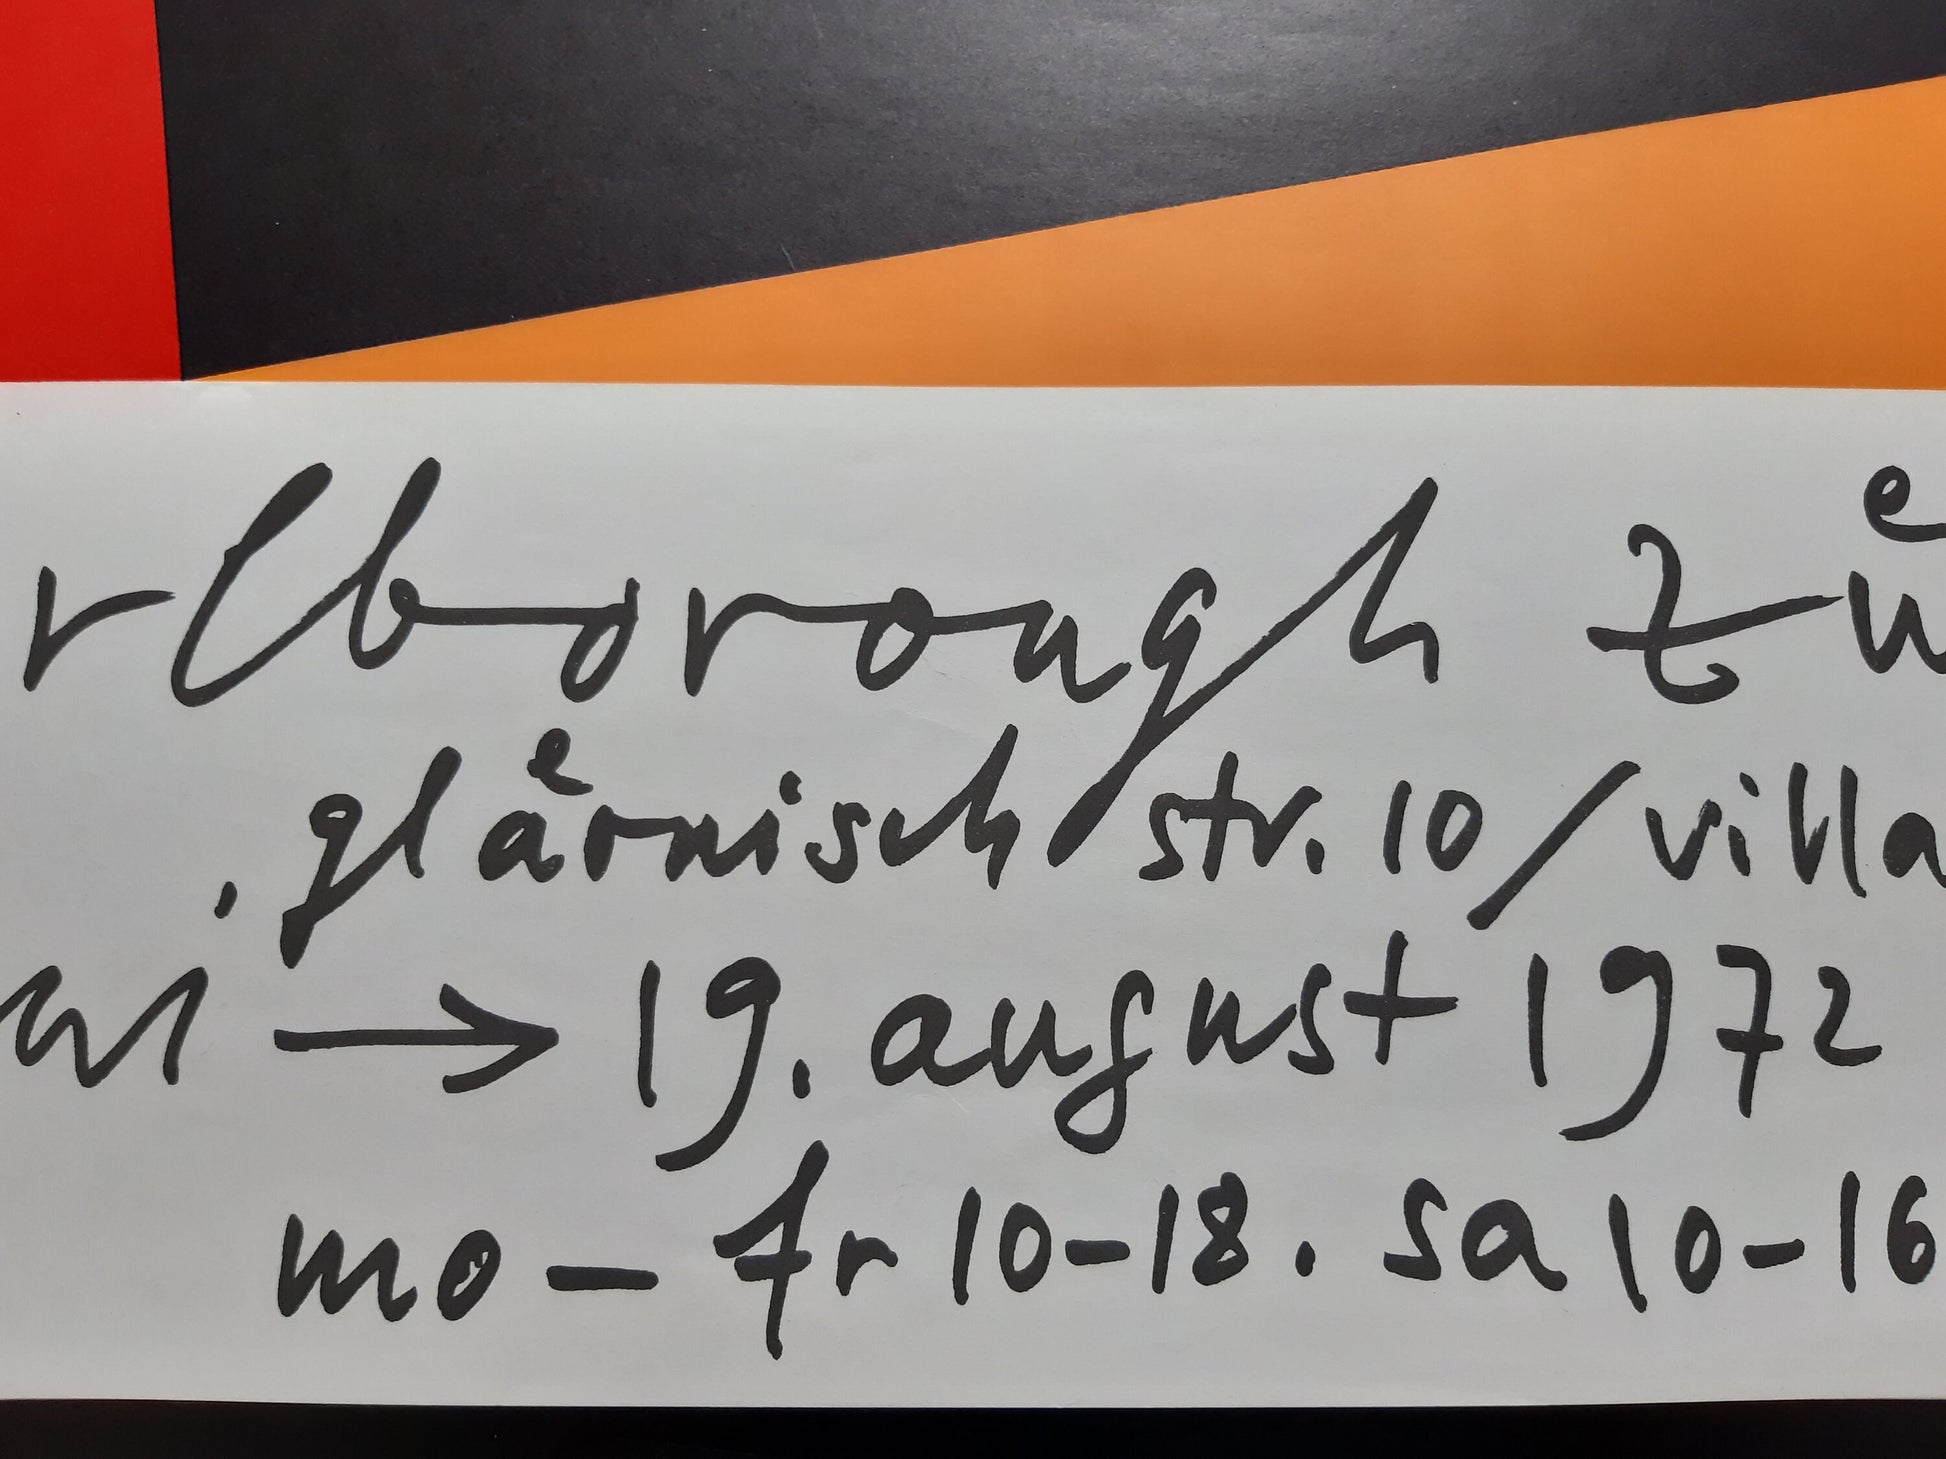 rlborough zü
. glärnisch str. 10 / villa
→ 19. august 1972
mo – fr 10-18. sa 10-16